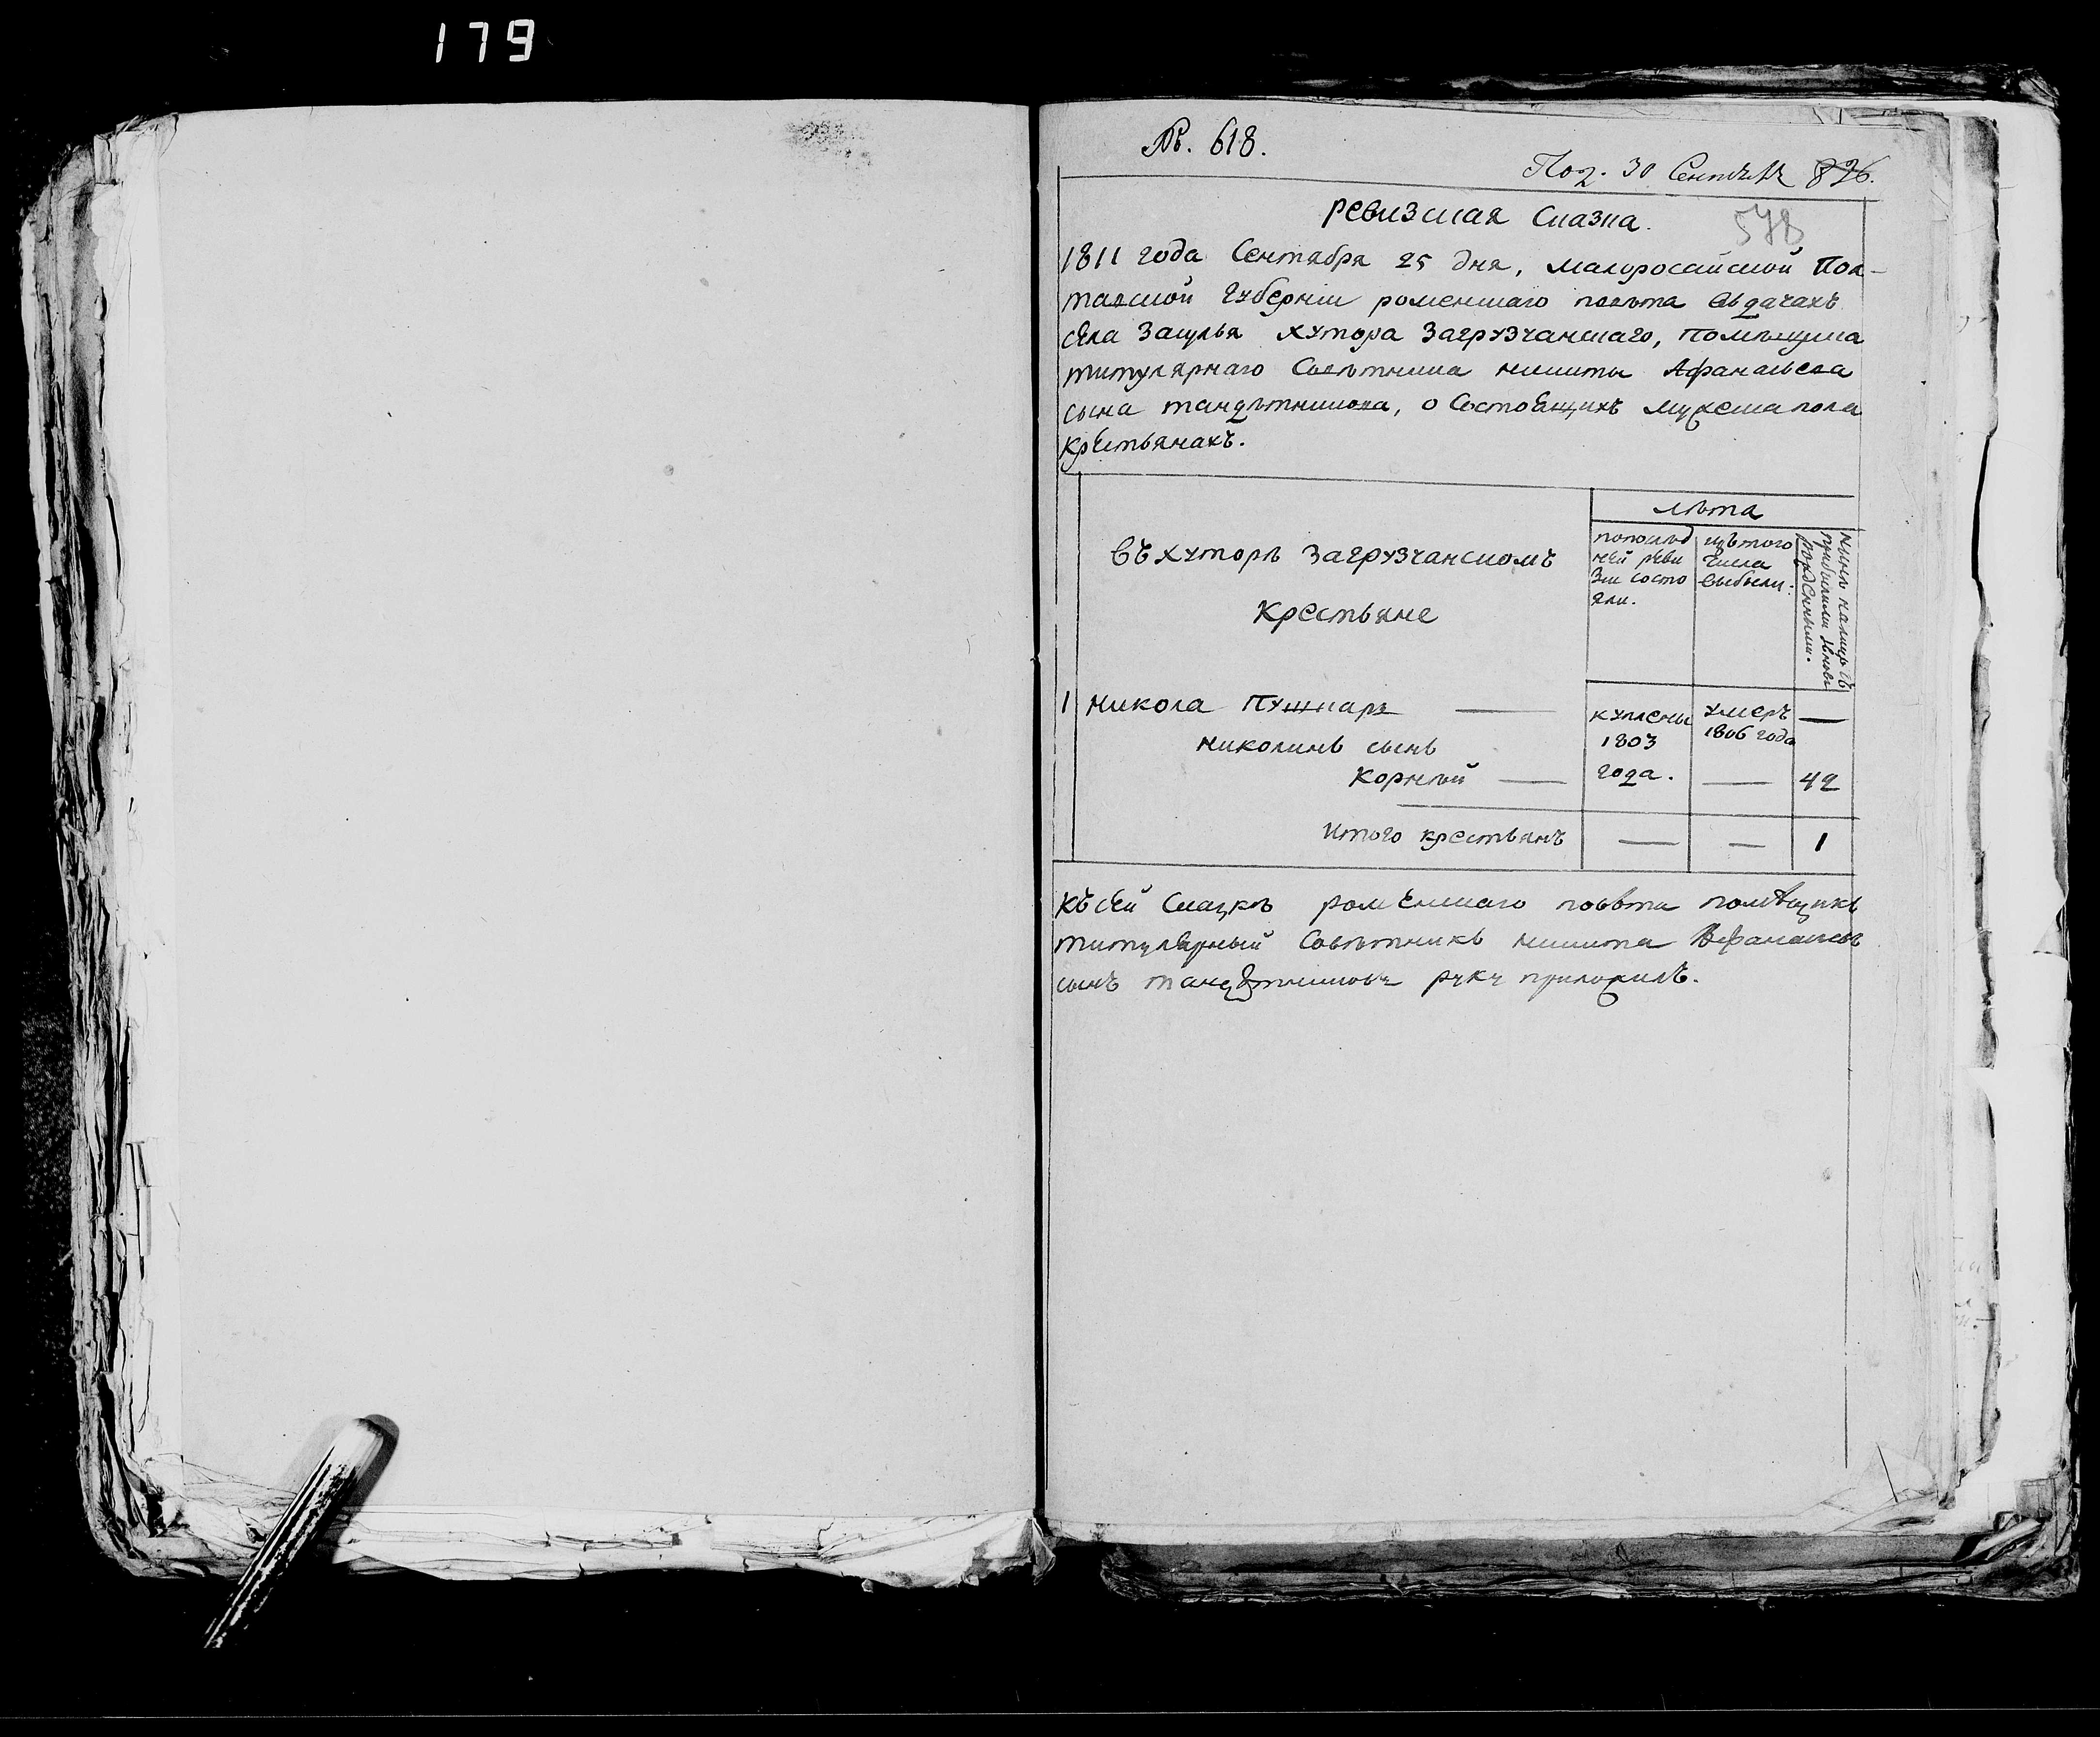 179
№. 618.
Под. 30 Сентября 826.
578
Ревизская Сказка.
1811 года Сентября 25 дня, Малоросайской Пол-
тавской Губерніи роменскаго повѣта въ дачахъ
села Засулья хутора Загрузчанскаго, Помѣщика
титулярнаго Совѣтника Никиты Афанасьева
сына Тандѣтникова, о Состоящихъ Мужеска пола
крестьянахъ.
лѣта
въ хуторѣ Загрузчанскомъ
Крестьяне
по послѣд
ней реви
зіи состо
яли.
изъ того
числа
выбыли:
нынѣ на лицо съ
прибылыми и вновь
рожденными.
1 Никола Пушкарь — куплены умеръ —
Николинъ сынъ 1803 1806 года
Корнѣй — года. — 42
Итого крестьянъ — — 1
Къ сей Сказкѣ роменскаго повѣта помѣщикъ
титулярный Совѣтникъ Никита Афанасьевъ
сынъ Тандѣтниковъ руку приложилъ.